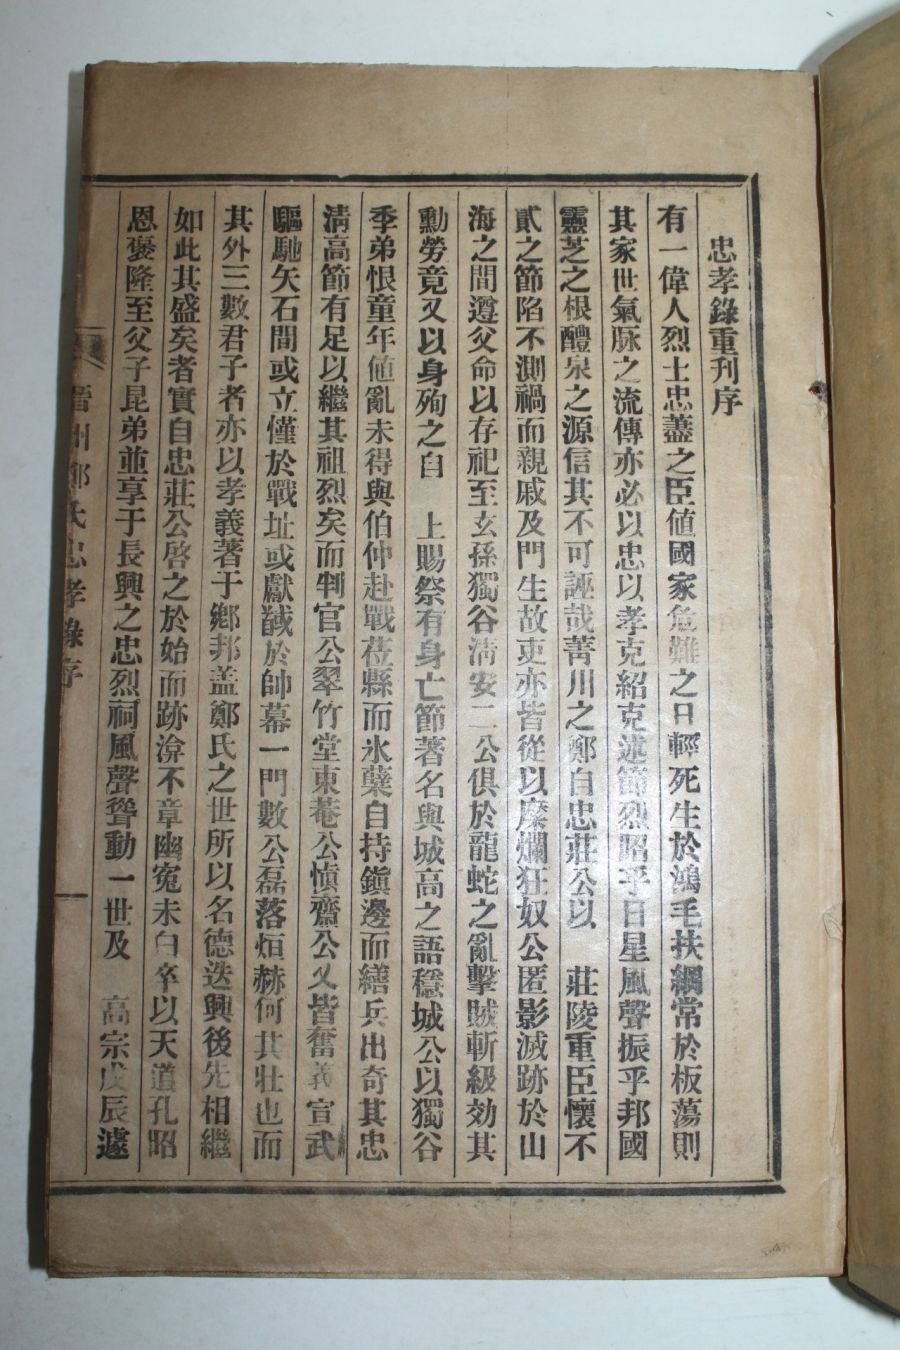 忠孝錄重刊序
有一偉人烈士忠藎之臣値國家危難之日輕死生於鴻毛扶綱常於板蕩則
其家世氣脉之流傳亦必以忠以孝克紹克述節烈昭乎日星風聲振乎邦國
靈芝之根醴泉之源信其不可誣哉菁川之鄭自忠莊公以 莊陵重臣懷不
貳之節陷不測禍而親戚及門生故吏亦皆從以糜爛狂奴公匿影滅跡於山
海之間遵父命以存祀至玄孫獨谷淸安二公俱於龍蛇之亂擊賊斬級効其
勳勞竟又以身殉之自 上賜祭有身亡節著名與城高之語穩城公以獨谷
季弟恨童年値亂未得與伯仲赴戰莅縣而氷蘗自持鎭邊而繕兵出奇其忠
淸高節有足以繼其祖烈矣而判官公翠竹堂東菴公愼齋公又皆奮義宣武
驅馳矢石間或立慬於戰址或獻馘於帥幕一門數公磊落烜赫何其壯也而
其外三數君子者亦以孝義著于鄕邦盖鄭氏之世所以名德迭興後先相繼
如此其盛矣者實自忠莊公啓之於始而跡渰不章幽寃未白卒以天道孔昭
恩褒隆至父子昆弟並享于長興之忠烈祠風聲聳動一世及 高宗戊辰遽
晋州鄭氏忠孝錄序